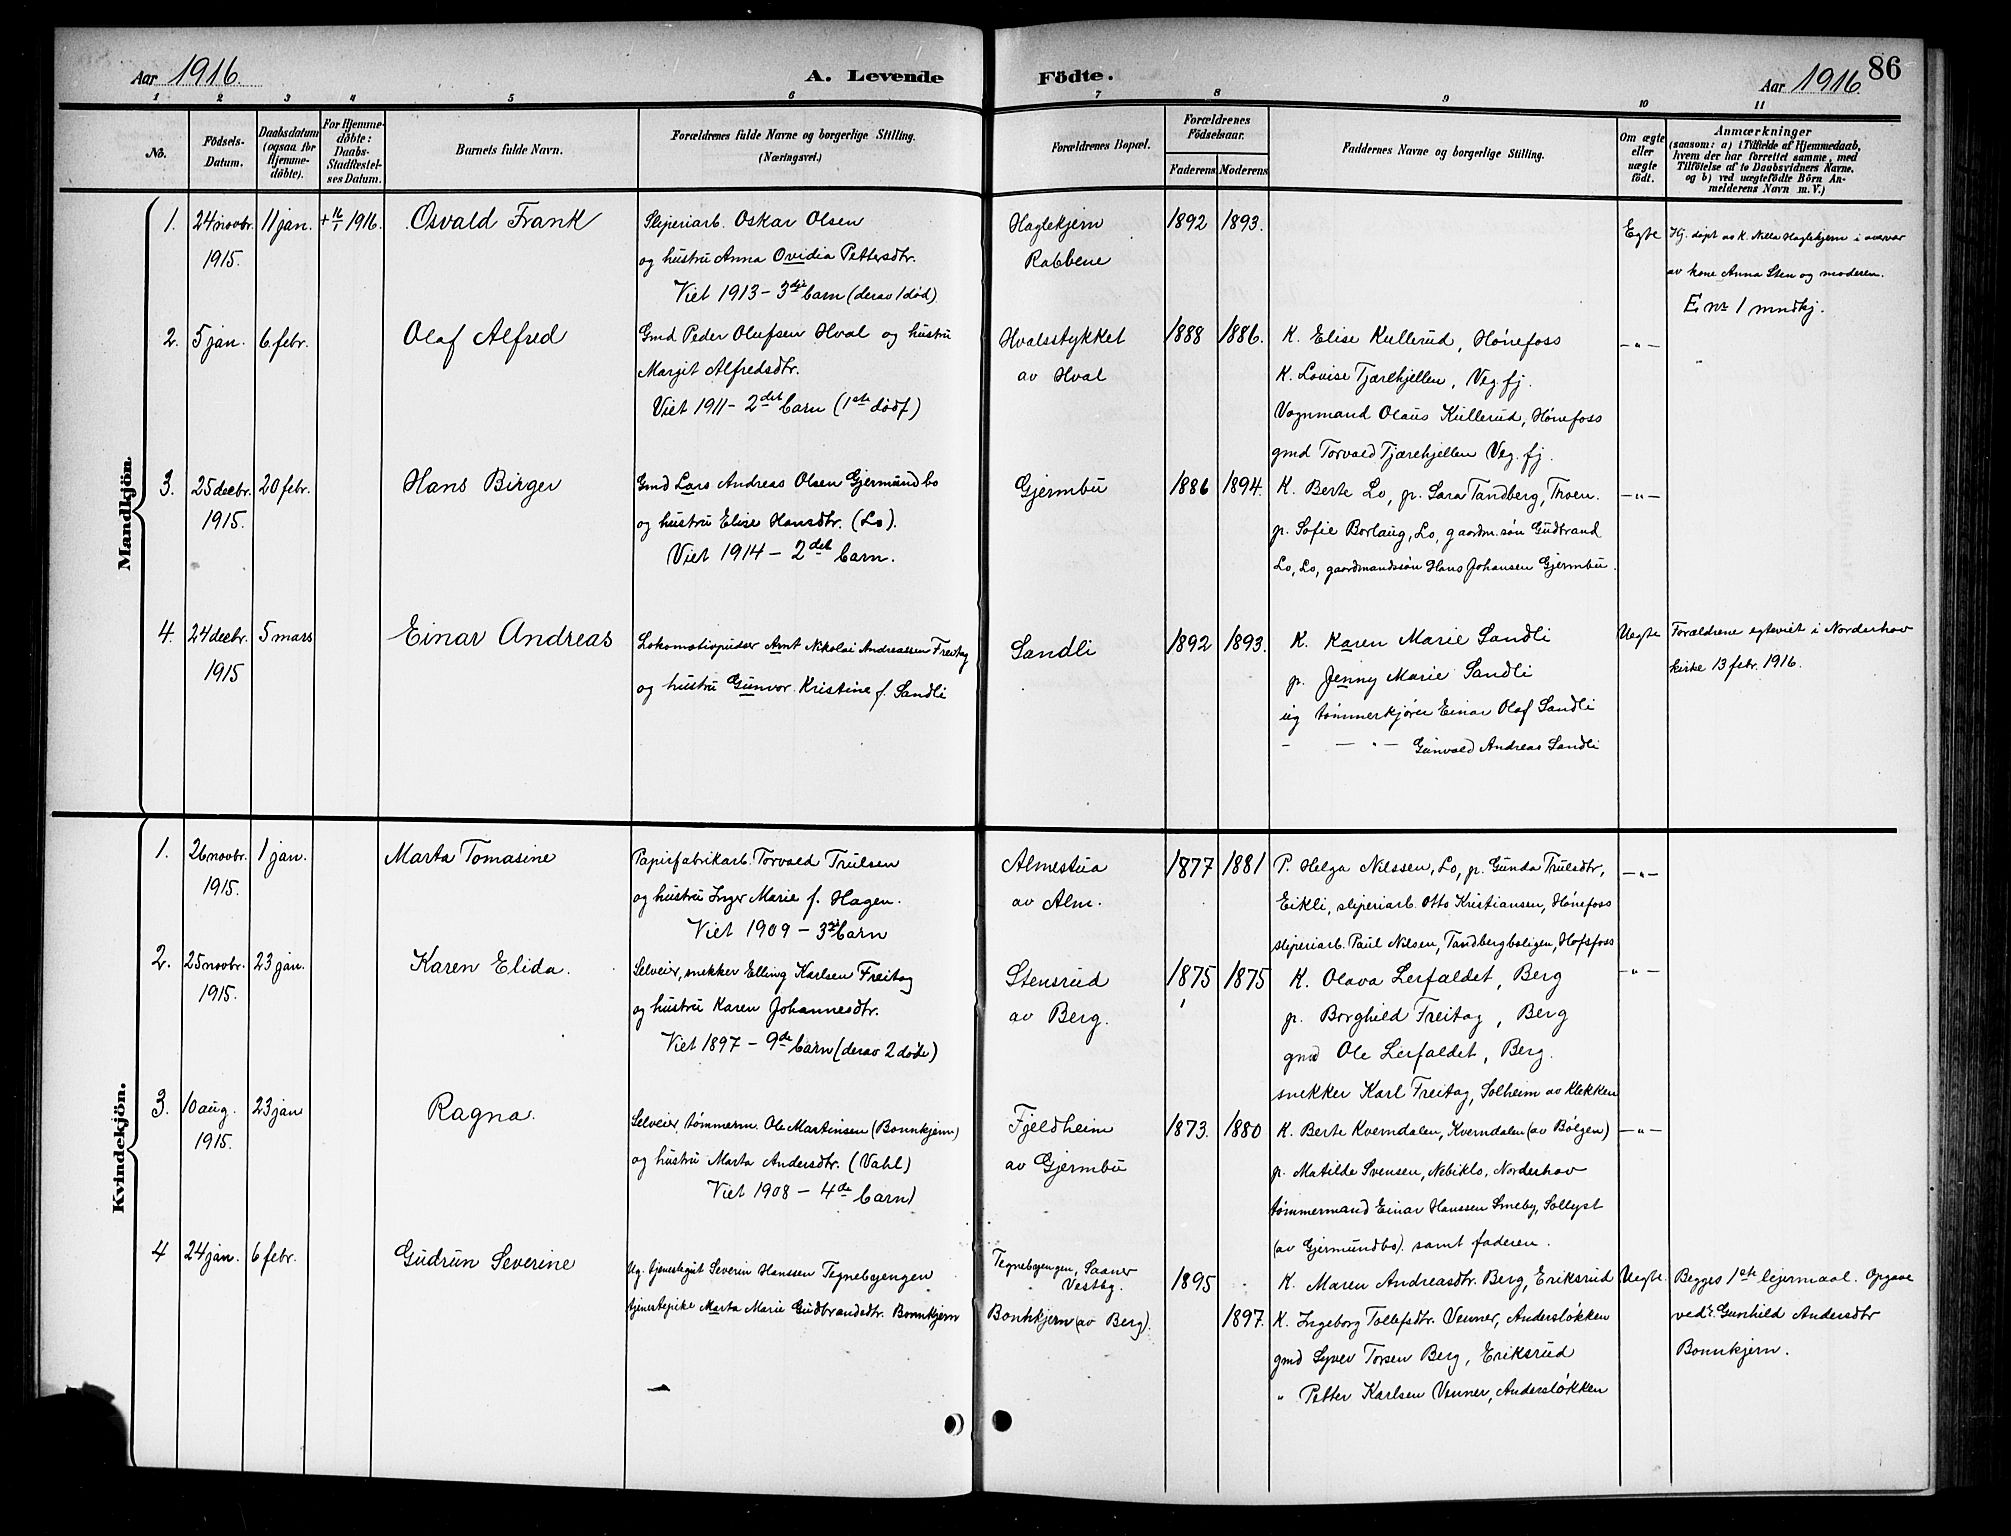 86
Aar 1916. A. Levende Födte. Aar 1916.
1 2 3 4 5 6 7 8 9 10 11
No. Födsels-Datum. Daabsdatum (ogsaa for Hjemmedöbte). For Hjemmedöbte: Daabs-Stadfæstelses Datum. Barnets fulde Navn. Forældrenes fulde Navne og borgerlige Stilling. (Næringsvei.) Forældrenes Bopæl. Forældrenes Födselsaar. Faderens. Moderens. Faddernes Navne og borgerlige Stilling. Om ægte eller uægte födt. Anmærkninger (saasom: a) i Tilfælde af Hjemmedaab, hvem der har forrettet samme, med Tilföielse af to Daabsvidners Navne, og b) ved uægtefödte Börn Anmelderens Navn m. V.)
Mandkjön.
1. 24 novbr. 11 jan. + 16/1 1916. Osvald Frank Sliperiarb. Oskar Olsen Haglekjern 1892 1893. Egte Hj. døpt av K. Nilla Haglekjern i overvær
1915. og hustru Anna Ovidia Pettersdtr. Rabbene av kone Anna Sten og moderen.
Viet 1913 - 3die barn (derav 1 død) E. nr 1 mndkj.
2. 5 jan. 6 febr. Olaf Alfred Gmd Peder Olufsen Hval og hustru Hvalsstykket 1888 1886. K. Elise Kullerud, Hønefoss —"—
Margit Alfredsdtr. av Hval K. Lovise Tjærekjellen, Veg. fj.
Viet 1911 - 2det barn (1ste dødf) Vognmand Olaus Kullerud, Hønefoss
gmd Torvald Tjærekjellen Veg. fj.
3. 25 decbr. 20 febr. Hans Birger Gmd Lars Andreas Olsen Gjermundbo Gjermbu 1886 1894. K. Berte Lo, p. Sara Tandberg, Moen. —"—
1915. og hustru Elise Hansdtr. (Lo). p. Sofie Borlaug, Lo, gaardm.søn Gudbrand
Viet 1914 - 2det barn. Lo, Lo, gaardmandssøn Hans Johansen Gjermbu.
4. 24 decbr. 5 mars Einar Andreas Lokomotivpudser Arnt Nikolai Andreassen Freitag Sandli 1892 1893. K. Karen Marie Sandli Uegte Forældrene egteviet i Norderhov
1915 og hustru Gunvor Kristine f. Sandli p. Jenny Marie Sandli kirke 13 febr. 1916.
ug tømmerkjører Einar Olaf Sandli
- — " — Gunvald Andreas Sandli
Kvindekjön.
1. 26 novbr. 1 jan. Marta Tomasine Papirfabrikarb. Torvald Trulsen Almestua 1877 1881 P. Helga Nilssen, Lo, p. Gunda Trulsdtr, —"—
1915. og hustru Inger Marie f. Hagen. av Alm. Eikli, sliperiarb. Otto Kristiansen, Hønefoss
Viet 1909 - 3die barn sliperiarb. Paul Nilsen, Tandbergboligen, Hofsfoss
2. 25 novbr. 23 jan. Karen Elida. Selveier, snekker Elling Karlsen Freitag Stensrud 1875 1875 K. Olava Lerfaldet, Berg —"—
1915. og hustru Karen Johannesdtr. av Berg. p. Borghild Freitag, Berg
Viet 1897 - 9de barn (derav 2 døde) gmd Ole Lerfaldet, Berg.
snekker Karl Freitag, Solheim av Klekken
3. 10 aug. 23 jan Ragna. Selveier, tømmerm. Ole Martinsen (Bonnkjern) Fjeldheim 1873. 1880 K. Berte Kverndalen, Kverndalen (av Bølgen) —"—
1915. og hustru Marta Andersdtr. (Vahl) av Gjermbu p. Matilde Svensen, Nebiklo, Norderhov
Viet 1908 - 4de barn) tømmermand Einar Hanssen Smeby, Sollyst
(av Gjermundbo). samt faderen.
4 24 jan. 6 febr. Gudrun Severine Ug. tjenestegut Severin Hanssen Tegnebøengen Tegnebøengen, Saaner Vestby. 1895 K. Maren Andreasdtr. Berg, Eriksrud Uegte. Begges 1ste leiermaal. Opgave
tjenestepike Marta Marie Gudbrandsdtr. Bonnkjern Bonnkjern (av Berg). 1897. K. Ingeborg Tollefsdtr. Venner, Andersløkken ved: Gunhild Andersdtr
gmd Syver Torsen Berg, Eriksrud Bonnkjern.
" Petter Karlsen Venner, Andersløkken